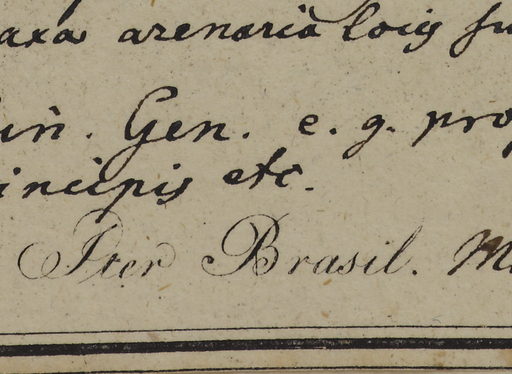 axa arenaria locis su
in. Gen. e. g. prop
incipis etc.
Iter Brasil. M